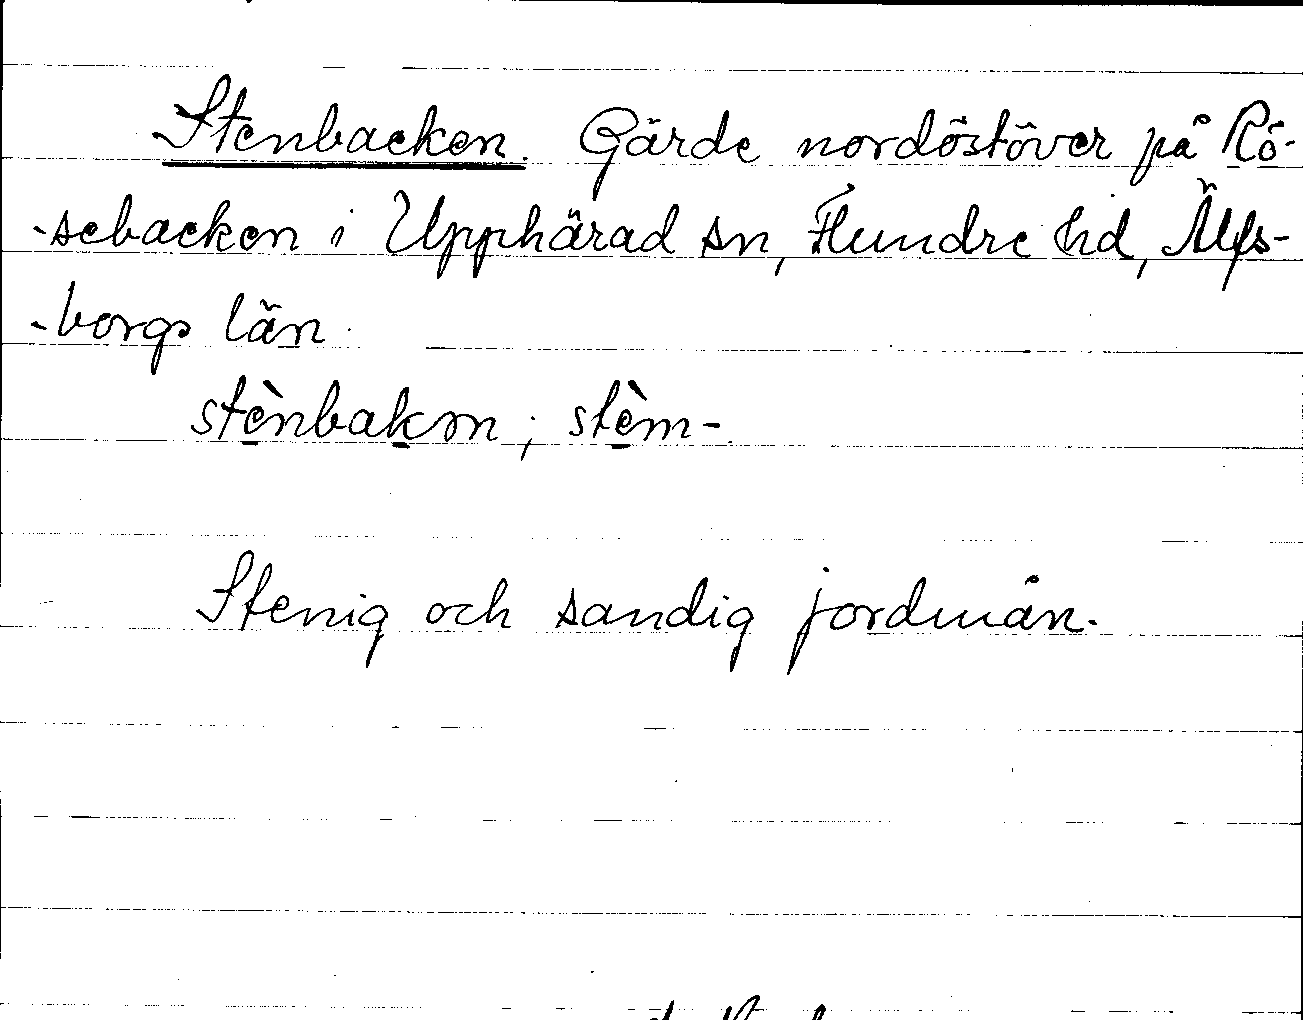 Stenbacken. Gärde nordöstöver på Rö-
-sebacken i Upphärad sn, Flundre hd, Älfs-
-borgs län.
stènbakɷn; stèm-
Stenig och sandig jordmån.